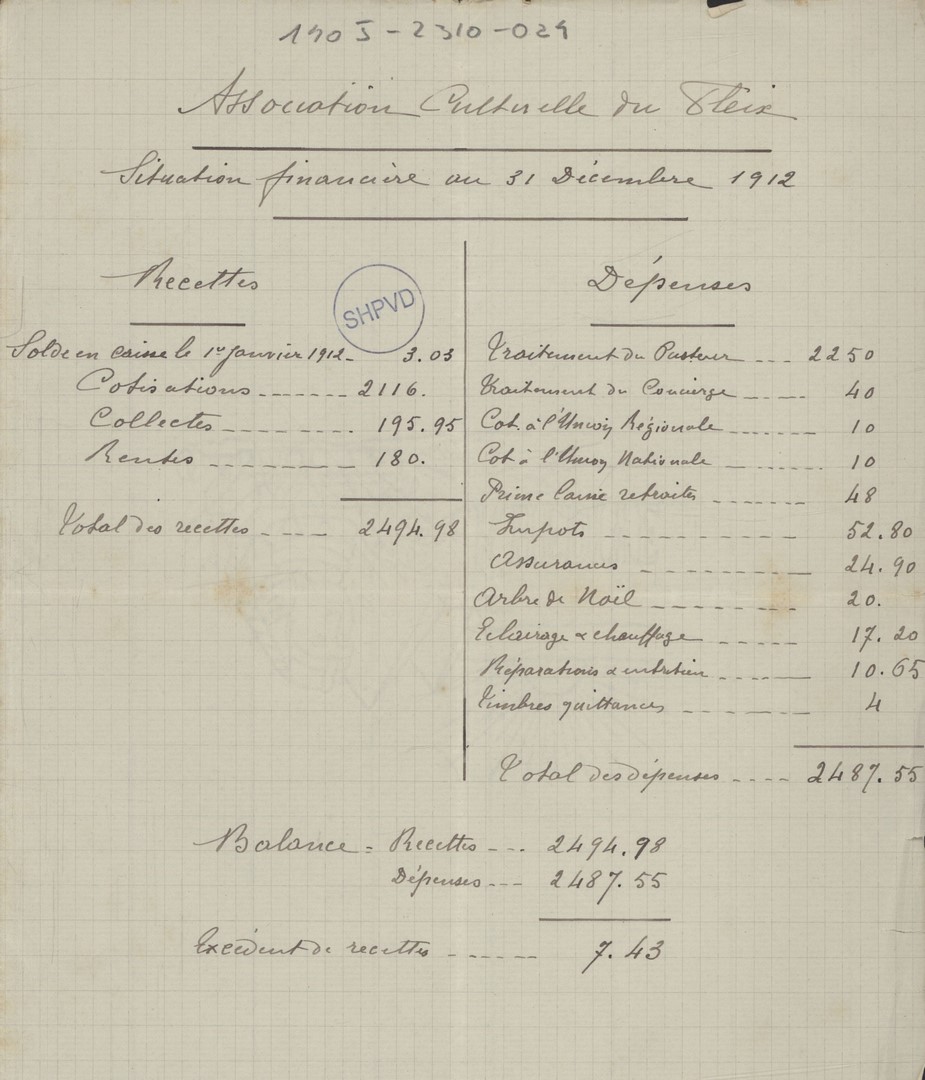 190J-2310-029
Association Culturelle du Fleix
Situation financière au 31 Décembre 1912
Recettes
SHPVD
Solde en caisse le 1er Janvier 1912 - 3.03
Cotisations ------- 2116.
Collectes ------- 195.95
Rentes ------- 180.
Total des recettes ---- 2494.98
Dépenses
Traitement du Pasteur --- 2250
Traitement du Concierge ----- 40
Cot. à l'Union Régionale ------ 10
Cot à l'Union Nationale ------ 10
Prime Caisse retraites ------ 48
Impots ---------- 52.80
Assurances -------- 24.90
Arbre de Noël ------- 20.
Eclairage & chauffage ------ 17.20
Réparations & entretien ----- 10.65
Timbres quittances ------- 4
Total des dépenses ---- 2487.55
Balance = Recettes --- 2494.98
Dépenses --- 2487.55
Excédent de recettes ------ 7.43